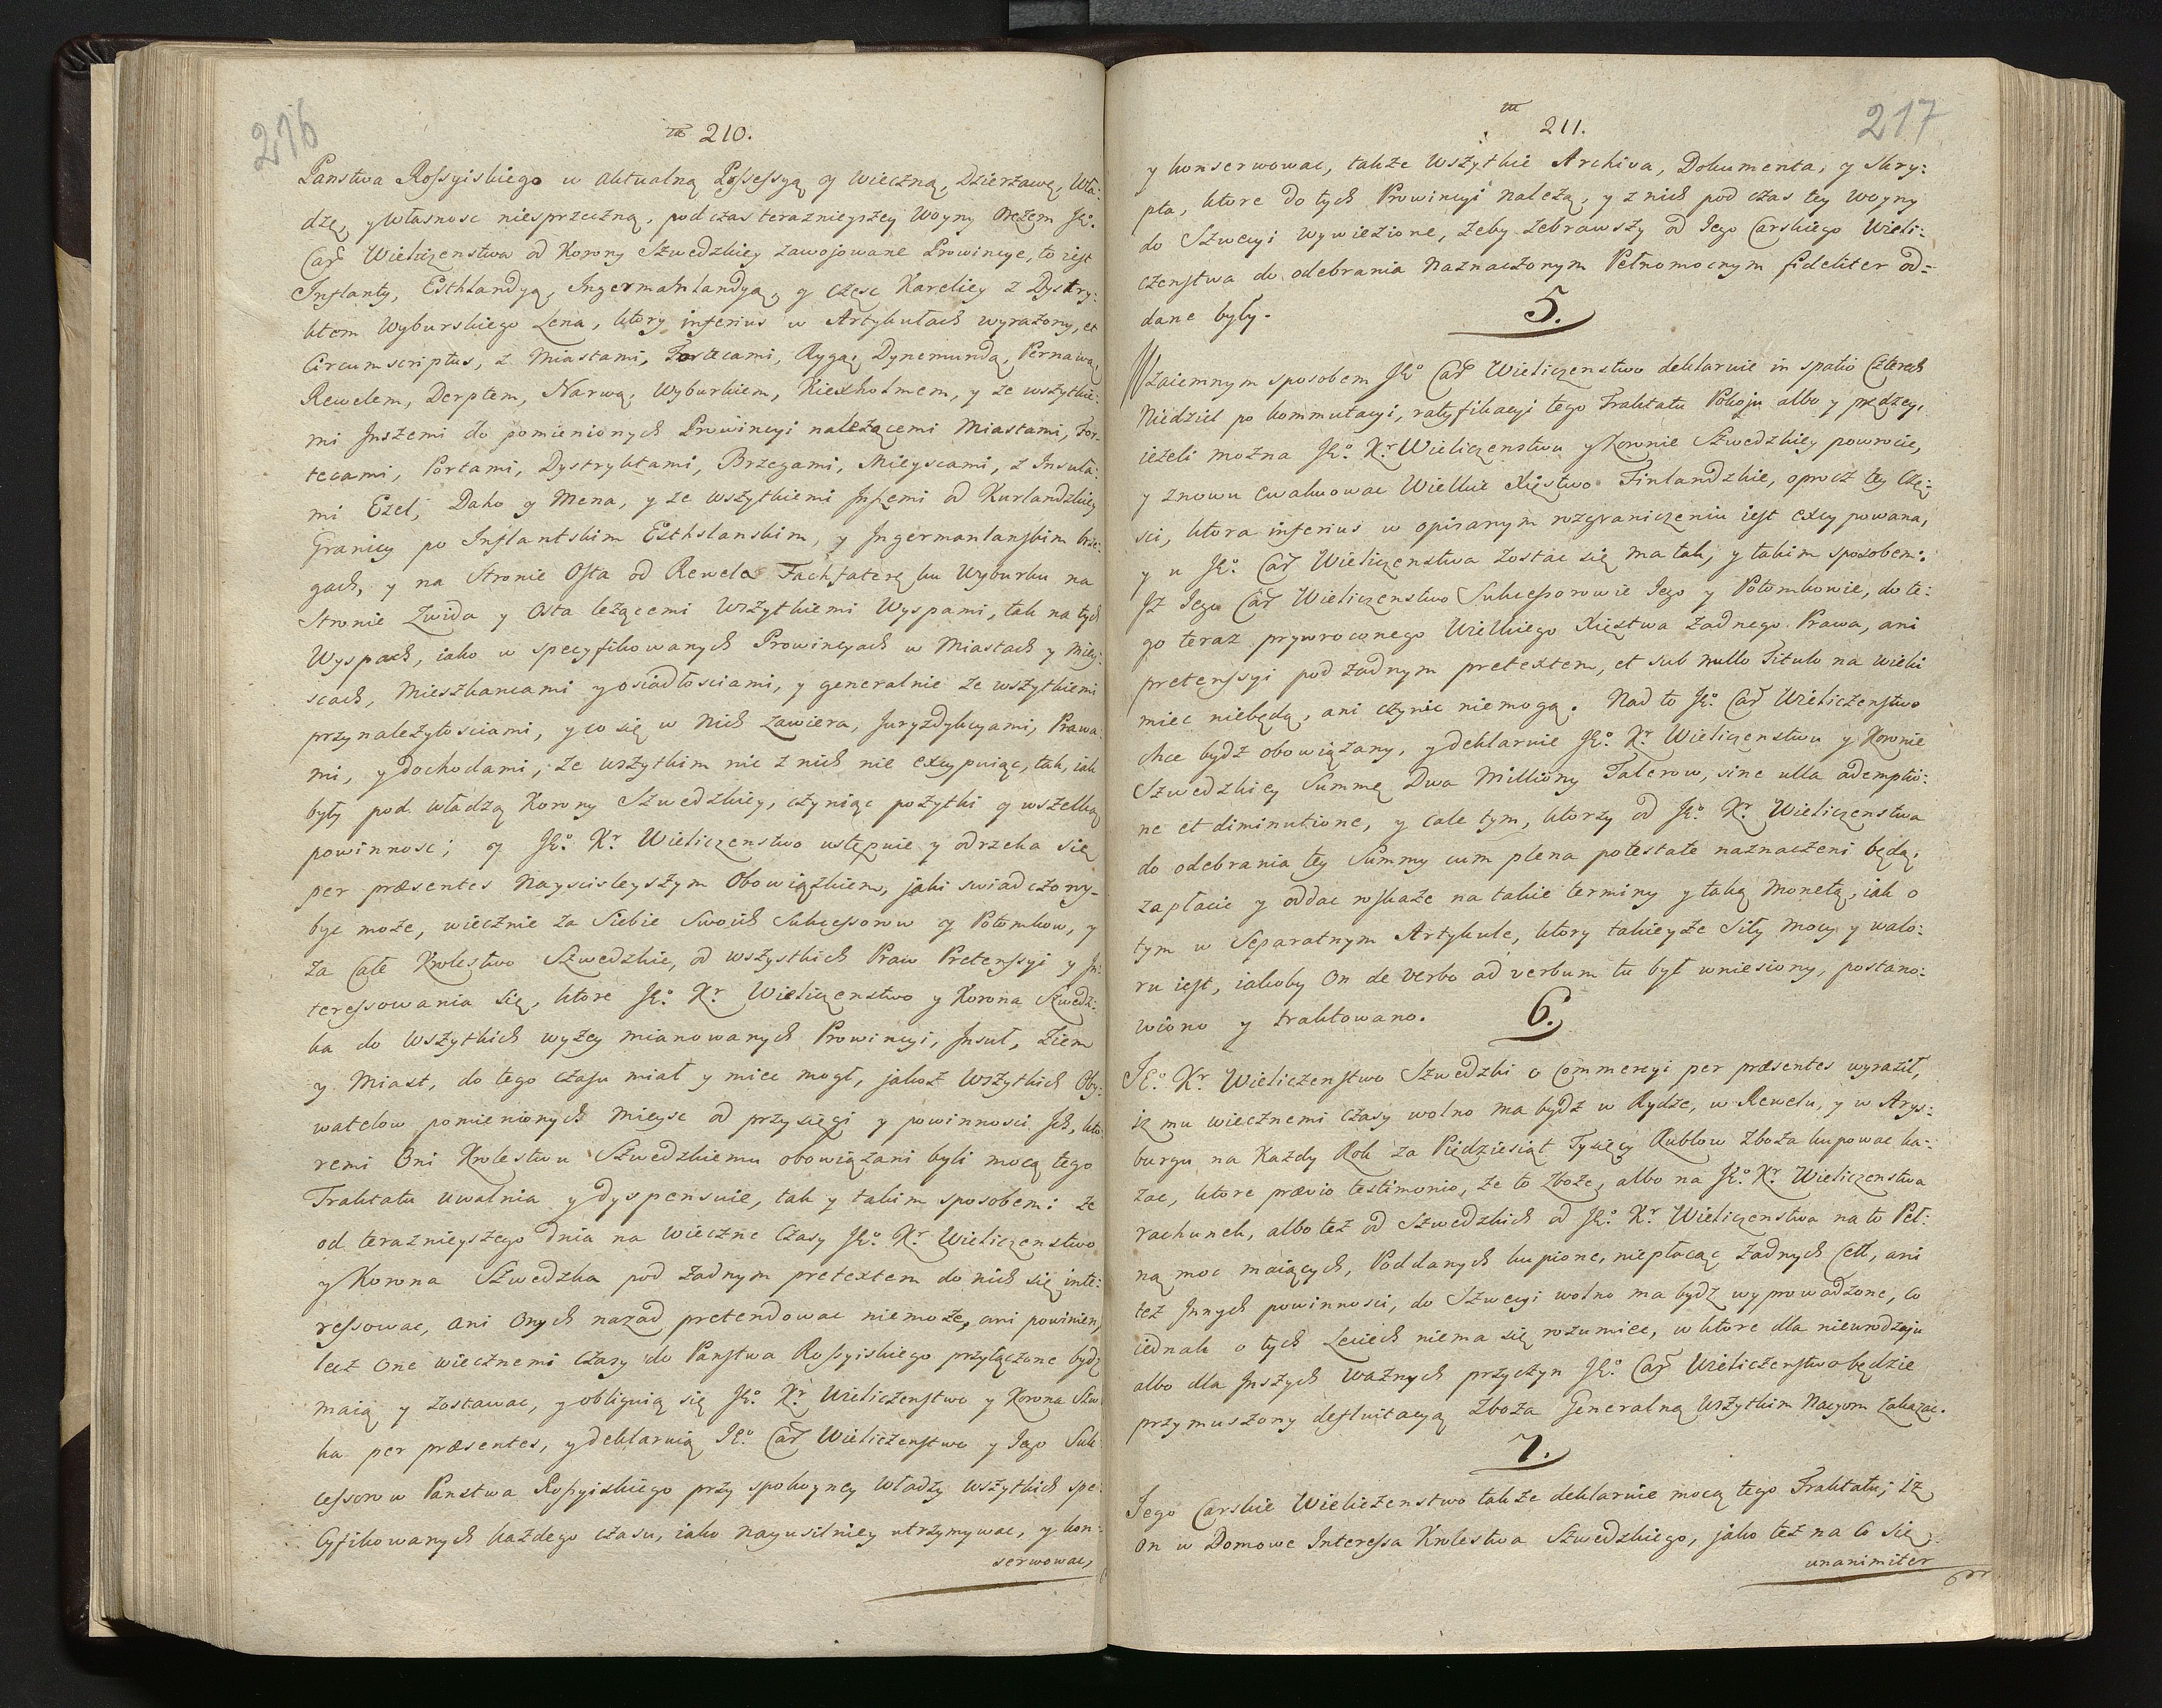 216
210.
Panstwa Rossyiskiego w aktualną Possessyą y wieczną, Dzierzawę, Wła:
dzę, y własnosc niesprzeczną, pod czas teraznieyszey Woyny Orężem JE͞o.
Car͞ Wieliczenstwa od Korony Szwedzkiey zawojowane Prowincye, to iest
Inflanty, Esthlandyą, Ingermahlandyą, y częsc Kareliey z Dystry:
ktem Wyburskiego Lena, ktory inferius w Artykułach wyrazony, et
Circumscriptus, z Miastami, Fortecami, Rygą, Dynemundą, Pernawą,
Rewelem, Derptem, Narwą, Wyburkiem, Kiexholmem, y ze wszytkie:
mi Inszemi do pomienionych Prowincyi nalezącemi Miastami, For:
tecami, Portami, Dystryktami, Brzegami, Mieyscami, z Insuła:
mi Ezel, Daho y Mena, y ze wszytkiemi Inszemi od Kurlandzkiey
Granicy po Inflantskim Esthslanskim, y Ingermanlanskim brze:
gach, y na Stronie Osta od Rewela Fachfaterę ku Wyburku na
Stronie Zwida y Osta leżącemi Wszytkiemi Wyspami, tak na tych
Wyspach, iako w specyfikowanych Prowincyach w Miastach y Miey:
scach, Mieszkancami y osiadłosciami, y generalnie ze wszytkiemi
przynależytosciami, y co się w nich zawiera, Juryzdykcyami, Prawa:
mi, y dochodami, ze wszytkim nic z nich nie excypuiąc, tak, iak
były pod władzą Korony Szwedzkiey, czyniąc pożytki y wszelką
powinnosc; y JE͞o. Kr. Wieliczenstwo ustępuie y odrzeka się
per præsentes Nayscisleyszym Obowiązkiem, jaki swiadczony
byc może, wiecznie za Siebie Swoich Sukcessorow y Potomkow, y
za Całe Krolestwo Szwedzkie, od wszystkich Praw Pretenssyi y In:
teressowania się, ktore JE͞o. Kr. Wieliczenstwo y Korona Szwedz:
ka do Wszytkich wyżey mianowanych Prowincyi, Insuł, Ziem
y Miast, do tego czasu miał y miec mogł, jakoż Wszytkich Oby:
watelow pomienionych mieysc od przysięgi y powinnosci Ich, kto:
remi Oni Krolestwu Szwedzkiemu obowiązani byli mocą tego
Traktatu uwalnia y dyspensuie, tak y takim sposobem: że
od teraznieyszego dnia na wieczne Czasy JE͞o. Kr. Wieliczenstwo
y Korona Szwedzka pod żadnym pretextem do nich się inte:
ressowac, ani Onych nazad pretendowac niemoże, ani powinien,
lecz One wiecznemi Czasy do Panstwa Rossyiskiego przyłączone bydz
maią y zostawac, y obliguią się JE͞o. Kr. Wieliczenstwo y Korona Szw
ka per præsentes, y deklaruią JE͞o. Car͞ Wieliczenstwo y Jego Suk:
cessorow Panstwa Rossyiskiego przy spokoyney Władzy wszytkich spe:
cyfikowanych każdego czasu, iako nayusilniey utrzymywac, y kon:
serwowac,
217
211.
y konserwowac, także Wszytkie Archiva, Dokumenta, y Skry:
pta, ktore do tych Prowincyi należą, y z nich pod czas tey Woyny
do Szwecyi wywiezione, żeby zebrawszy od Jego Carskiego Wieli:
czenstwa do odebrania Naznaczonym Pełnomocnym fideliter od=
dane były.
5.
Wzaiemnym sposobem JE͞o Car͞ Wieliczenstwo deklaruie in spatio Czterech
Niedziel po kommutacyi, ratyfikacyi tego Traktatu Pokoju albo y prędzey,
ieżeli można JE͞o. Kr. Wieliczenstwu y Koronie Szwedzkiey powrocic,
y znowu ewakuowac Wielkie Xięstwo Finlandzkie, oprocz tey Czę:
sci, ktora inferius w opisanym rozgraniczeniu iest excypowana,
y u JE͞o. Car͞ Wieliczenstwa zostac się ma tak, y takim sposobem:
Iż Jego Car͞ Wieliczenstwo Sukcessorowie Jego y Potomkowie, do te:
go teraz przywroconego Wielkiego Xięstwa żadnego Prawa, ani
pretenssyi pod żadnym pretextem, et sub nullo Titulo na wieki
miec niebędą, ani czynic niemogą. Nad to JE͞o. Car͞ Wieliczenstwo
chce bydz obowiązany, y deklaruie JE͞o. Kr. Wieliczenstwu y Koronie
Szwedzkiey Summę Dwa Milliony Talerow, sine ulla ademptio:
ne et diminutione, y cale tym, ktorzy od JE͞o. Kr. Wieliczenstwa
do odebrania tey Summy cum plena potestate naznaczeni będą,
zapłacic y oddac roskaże na takie terminy y taką Monetą, iak o
tym w Separatnym Artykule, ktory takieyże Siły Mocy y walo:
ru iest, iakoby On de verbo ad verbum tu był wniesiony, postano:
wiono y traktowano.
6.
JE͞o. Kr. Wieliczenstwo Szwedzki o Commercyi per præsentes wyraził,
iż mu wiecznemi czasy wolno ma bydz w Rydze, w Rewelu, y w Arys:
burgu na Każdy Rok za Pięcdziesiąt Tysięcy Rublow Zboża kupowac ka:
zac, ktore prævio testimonio, że to zboże, albo na JE͞o. Kr. Wieliczenstwa
rachunek, albo też od Szwedzkich od JE͞o. Kr. Wieliczenstwa na to Peł:
ną moc maiących, Poddanych kupione, niepłacąc żadnych Ceł, ani
też Innych powinnosci, do Szwecyi wolno ma bydz wyprowadzone, co
iednak o tych Leciech niema się rozumiec, w ktore dla nieurodzaju
albo dla Inszych ważnych przyczyn JE͞o. Car͞ Wieliczenstwo będzie
przymuszony defluitacyą Zboża Generalną Wszytkim Nacyom zakazac.
7.
Jego Carskie Wieliczenstwo także deklaruie mocą tego Traktatu, Iż
On w Domowe Interessa Krolestwa Szwedzkiego, jako też na Co Się
unanimiter